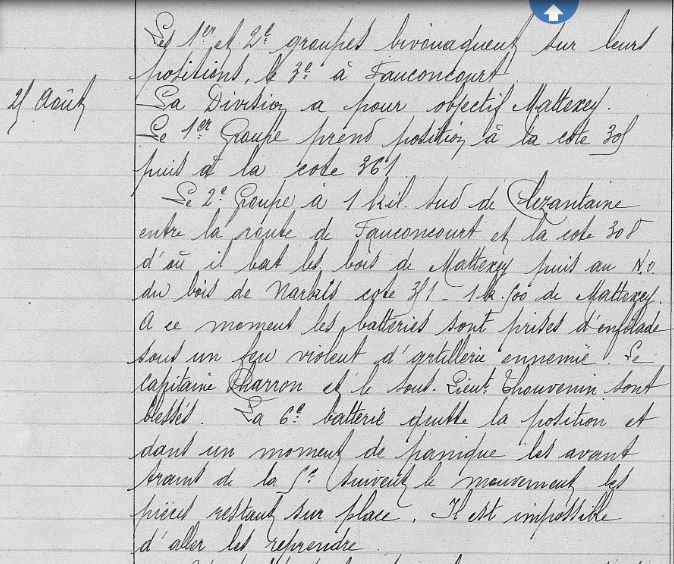 Les 1er et 2e groupes bivouaquent sur leurs
positions, le 3e à Fauconcourt.
25 Août
La Division a pour objectif Mattexey.
Le 1er Groupe prend position à la cote 305
puis à la cote 361
Le 2e Groupe à 1 kil. sud de Clezantaine
entre la route de Fauconcourt et la cote 308
d'où il bat les bois de Mattexey puis au N.O.
du bois de cote 351 - 1 k. 500 de Mattexey.
A ce moment les batteries sont prises d'enfilade
sous un feu violent d'artillerie ennemie. Le
Capitaine Charron et le sous-Lieut. Thouvenin sont
blessés. La 6e batterie quitte la position et
dans un moment de panique les avant
trains de la 5e suivent le mouvement, les
pièces restant sur place. Il est impossible
d'aller les reprendre.